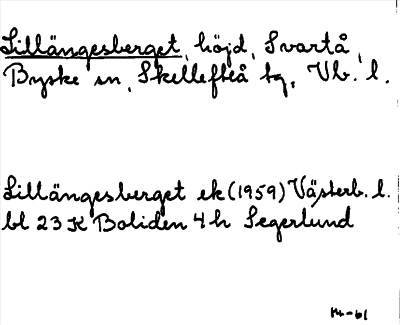 Lillängesberget, höjd, Svartå,
Byske sn, Skellefteå tg, Vb. l.
Lillängesberget ek (1959) Västerb. l.
bl 23 K Boliden 4 h Segerlund